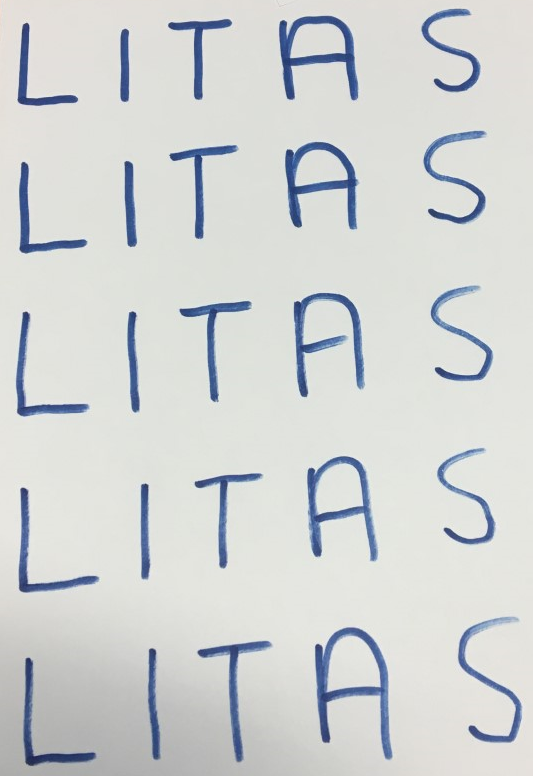 L I T A S
L I T A S
L I T A S
L I T A S
L I T A S